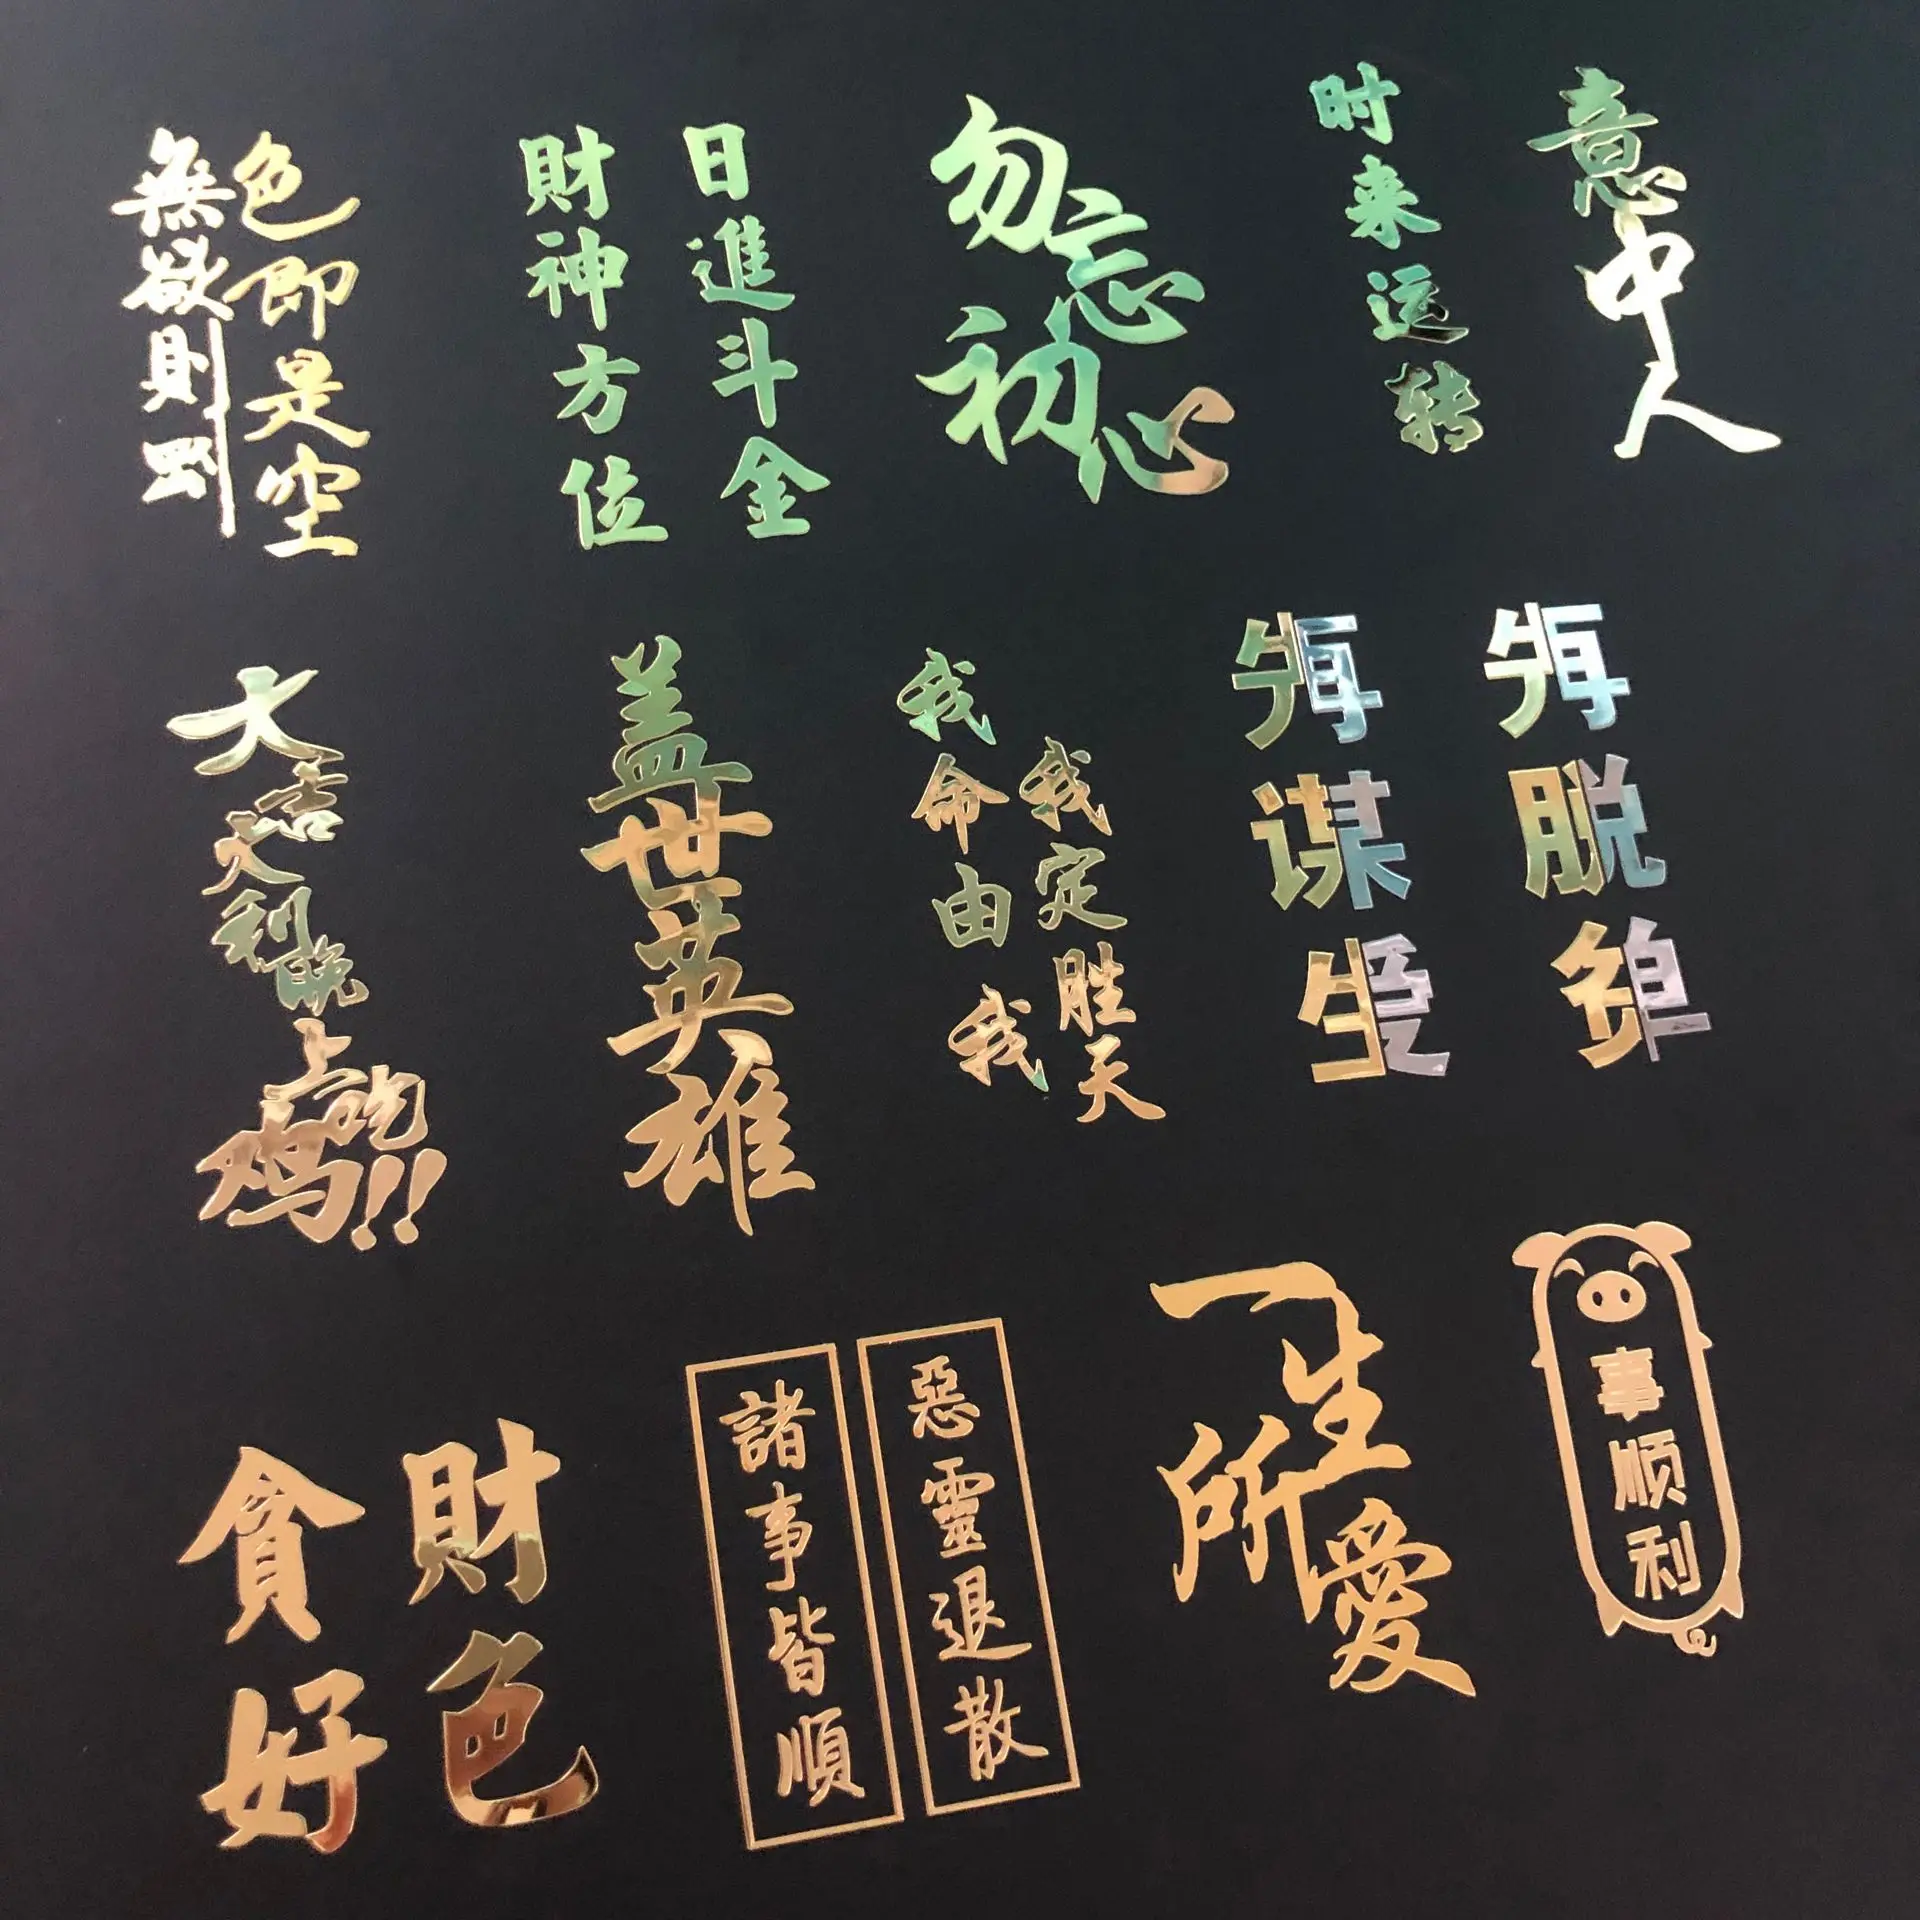 色即是空
無欲則剛
日進斗金
財神方位
勿忘初心
时来运转
意中人
大吉大利晚上吃鸡!!
盖世英雄
我命由我
我定胜天
谋
脱
貪財
好色
惡靈退散
諸事皆順
一生所愛
事顺利